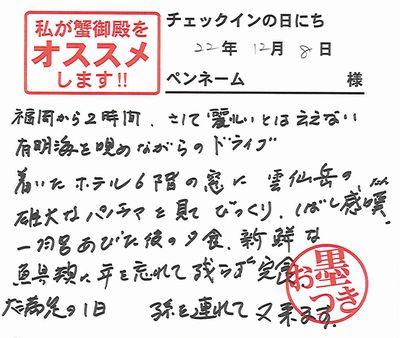 私が蟹御殿を
オススメ
します!!
チェックインの日にち
22年 12月 8日
ペンネーム 様
福岡から2時間、さして麗しいとは言えない
有明海を眺めながらのドライブ
着いたホテル6階の窓に雲仙岳の
雄大なパノラマを見てびっくり、しばし感嘆。
一風呂あびた後の夕食、新鮮な
魚貝類に年を忘れて残らず完食
大満足の1日 孫を連れて又来ます。
お墨つき